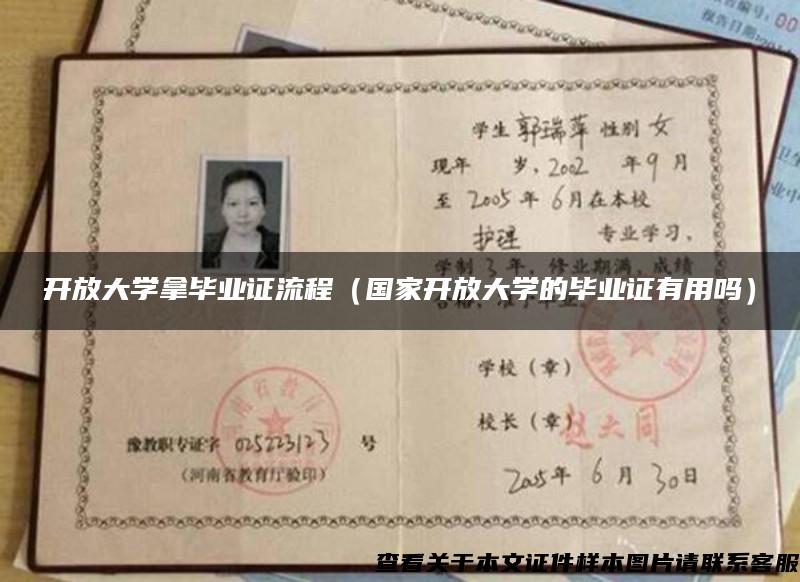 告编号：00
报告日期：201
学生 郭瑞萍 性别 女
现年 岁，2002 年 9 月
至 2005 年 6 月在本校
护理 专业学习，
学制 3 年，修业期满，成绩
开放大学拿毕业证流程（国家开放大学的毕业证有用吗）
学校（章）
校长（章） 赵大同
豫教职专证字 025223123 号
（河南省教育厅验印）
河南省教育厅
2005 年 6 月 30 日
查看关于本文证件样本图片请联系客服